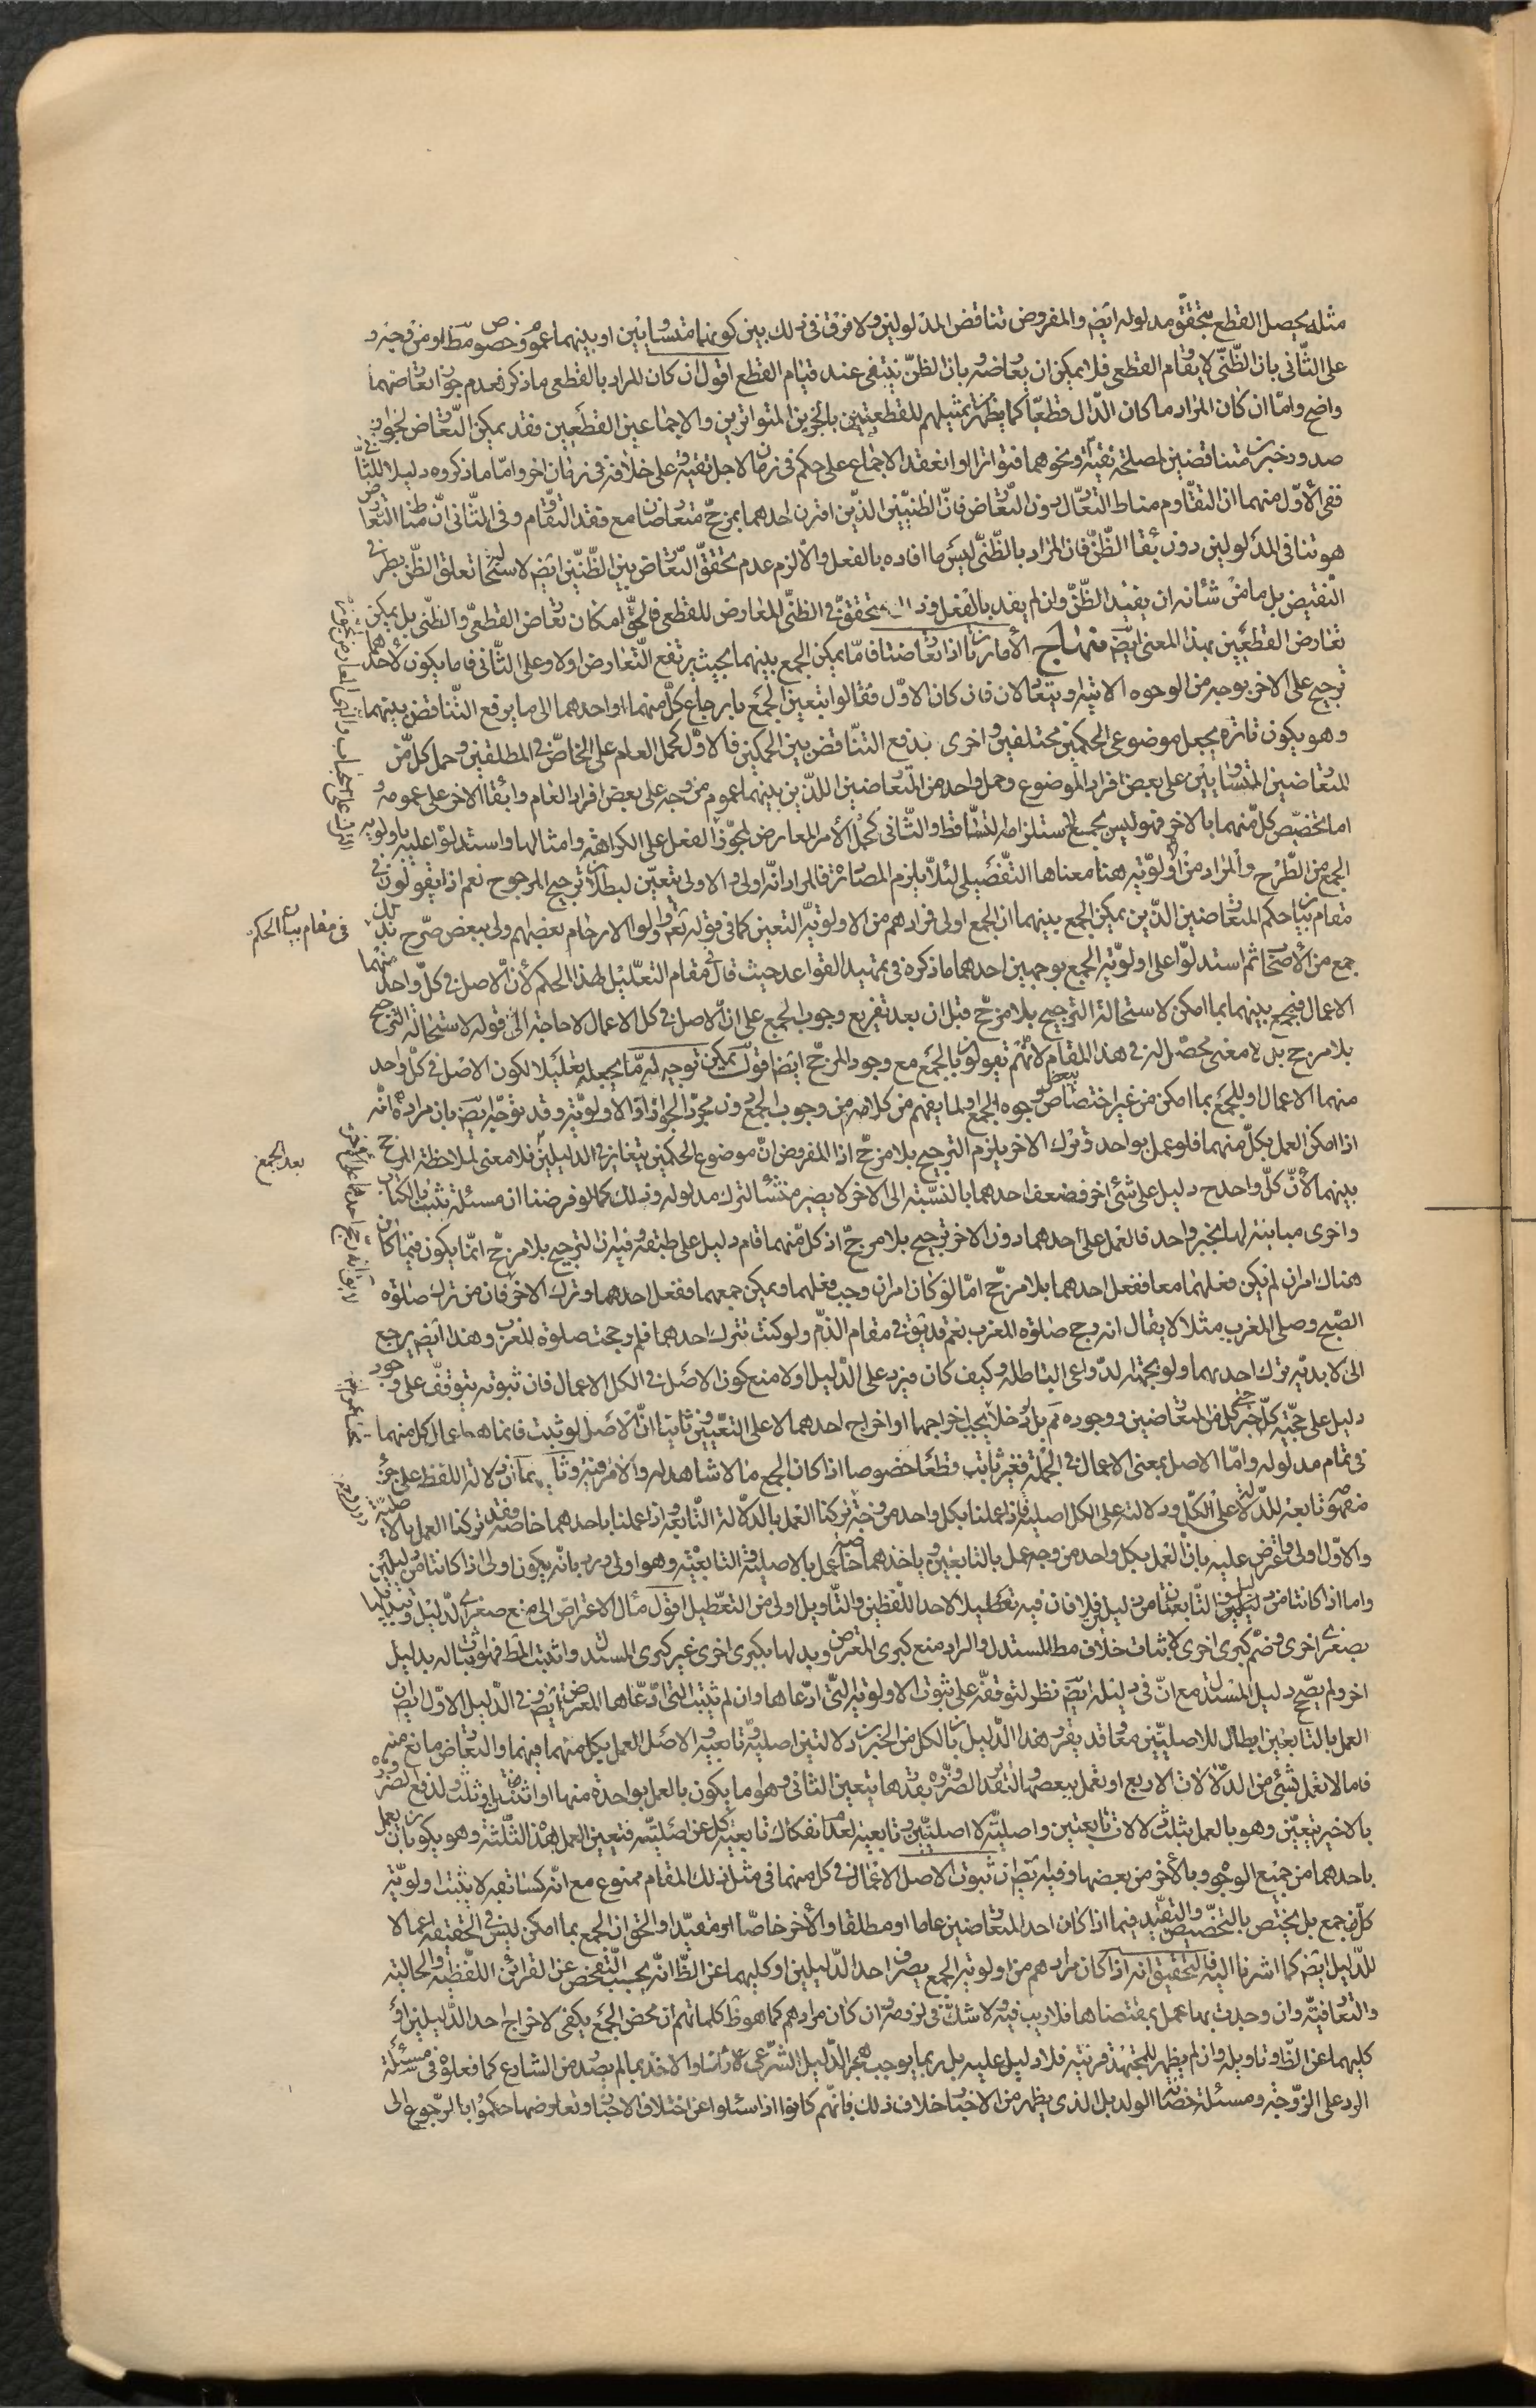 مثله يحصل القطع بتحقق مدلوله ايض والمفروض تناقض المدلولين ولا فرق في ذلك بين كونهما متساويين او بينهما عموم وخصوص مط او من وجه و
على الثاني بان الظني لا يقاوم القطعي فلا يمكن ان يعارضه بان الظن ينتفي عند قيام القطع اقول ان كان المراد بالقطعي ما ذكر فعدم جواز تعارضهما
واضح واما ان كان المراد ما كان الدال قطعيا كما يظهر من تمثيلهم للقطعيين بالخبرين المتواترين والاجماعين القطعيين فقد يمكن التعارض لجواز
صدور خبرين متناقضين لمصلحة تقية ونحوهما فتواترا او انعقد الاجماع على حكم في زمان لاجل تقية وعلى خلافه في زمان اخر واما ما ذكروه دليلا للثاني
ففي الأول منهما ان التقاوم مناط التعادل دون التعارض فان الظنيين الذين اقترن احدهما بمرجح متعارضان مع فقد التقاوم وفي الثاني ان مناط التعارض
هو تنافي المدلولين دون بقاء الظن فان المراد بالظني ليس ما افاده بالفعل والا لزم عدم تحقق التعارض بين الظنين ايض لاستحالة تعلق الظن بطرفي
النقيض بل ما من شانه ان يفيد الظن وان لم يفد بالفعل وذلك متحقق في الظني المعارض للقطعي فالحق امكان تعارض القطعي والظني بل يمكن
تعارض القطعيين بهذا المعنى ايض منهاج الأمارتان اذا تعارضتا فاما يمكن الجمع بينهما بحيث يرتفع التعارض اولا وعلى الثاني فاما يكون لاحدهما
ترجيح على الاخر بوجه من الوجوه الاتية او يتعادلان فان كان الاول فقالوا يتعين الجمع بارجاع كل منهما او احدهما الى ما يرفع التناقض بينهما
وهو يكون تارة بجعل موضوعي الحكمين مختلفين واخرى بدفع التناقض بين الحكمين فالاول كحمل العام على الخاص في المطلقين وحمل كل من
المتعارضين المتساويين على بعض افراد الموضوع وحمل واحد من المتعارضين اللذين بينهما عموم من وجه على بعض افراد العام وابقاء الاخر على عمومه و
اما تخصيص كل منهما بالاخر فهو ليس بجمع لاستلزامه لتساقط والثاني كحمل الأمر المعارض لمجوز الفعل على الكراهة وامثالها واستدلوا عليه باولوية
الجمع من الطرح والمراد من الاولوية هنا معناها التفضيلي لئلا يلزم المصادرة فالمراد انه اولى والاولى يتعين لبطلان ترجيح المرجوح نعم اذا يقولون في
مقام بيان حكم المتعارضين الذين يمكن الجمع بينهما ان الجمع اولى فمرادهم من الاولوية التعين كما في قوله تعه واولو الارحام بعضهم اولى ببعض صرح بذلك
جمع من الأصحاب ثم استدلوا على اولوية الجمع بوجهين احدهما ما ذكره في تمهيد القواعد حيث قال في مقام التعليل لهذا الحكم لأن الاصل في كل واحد منهما
الاعمال فيجمع بينهما بما امكن لاستحالة الترجيح بلا مرجح قيل ان بعد تفريع وجوب الجمع على ان الاصل في كل الاعمال لا حاجة الى قوله لاستحالة الترجيح
بلا مرجح بل لا معنى محصل له في هذا المقام لانهم يقولون بالجمع مع وجود المرجح ايضا اقول يمكن توجيهه اما بجعله تعليلا لكون الاصل في كل واحد
منهما الاعمال او للجمع بما امكن من غير اختصاص ببعض وجوه الجمع او لما يفهم من كلامه من وجوب الجمع دون مجرد الجواز او الاولوية وقد توجه ايض بان مراده انه
اذا امكن العمل بكل منهما فلو عمل بواحد وترك الاخر يلزم الترجيح بلا مرجح اذ المفروض ان موضوع الحكمين يتغاير في الدليلين فلا معنى لملاحظة المرجح
بينهما لأن كل واحد ح دليل على شئ اخر فضعف احدهما بالنسبة الى الاخر لا يصير منشأ لترك مدلوله وذلك كما لو فرضنا ان مسئلة تثبت بالكتاب
واخرى مباينة لها بخبر واحد فالعمل على احدهما دون الاخر ترجيح بلا مرجح اذ كل منهما قام دليل على طبقه وفيه ان الترجيح بلا مرجح انما يكون فيما كان
هناك امران لم يكن فعلهما معا ففعل احدهما بلا مرجح اما لو كان امران وجب فعلهما ويمكن جمعهما ففعل احدهما وترك الاخر فان من ترك صلوة
الصبح وصلى المغرب مثلا لا يقال انه رجح صلوة المغرب نعم قد يق في مقام الذم ولو كنت تترك احدهما فلم رجحت صلوة المغرب وهذا ايض يرجع
الى لابدية ترك احدهما ولو بجهة الدواعي الباطلة وكيف كان فيرد على الدليل اولا منع كون الاصل في الكل الاعمال فان ثبوته يتوقف على وجود
دليل على حجية كل خبر حتى كل من المتعارضين ووجوده ثم بل يجب اخراجهما او اخراج احدهما لا على التعيين وثانيا ان الاصل لو ثبت فانما هو اعمال كل منهما
في تمام مدلوله واما الاصل بمعنى الاعمال في الجملة فغير ثابت قطعا خصوصا اذا كان الجمع مما لا شاهد له والامر فيه وثانيهما ان دلالة اللفظ على جزء
مفهومه تابعة للدلالة على الكل ودلالته على الكل اصلية فاذا عملنا بكل واحد من وجه تركنا العمل بالدلالة التابعة واذا عملنا باحدهما خاصة فقد تركنا العمل بالاصلية
والاول اولى واعترض عليه بان العمل بكل واحد من وجه عمل بالتابعين وباخذهما خاصة عمل بالاصلية والتابعية وهو اولى ورد بانه يكون اولى اذا كانتا من دليلين
واما اذا كانتا من دليل والتابعتان من دليلين فلا فان فيه تعطيلا لاحد اللفظين والتاويل اولى من التعطيل اقول مال الاعتراض الى منع صغرى الدليل وتبديلها
بصغرى اخرى وضم كبرى اخرى لاثبات خلاف مطلب المستدل والراد منع كبرى المعترض وبدلها بكبرى اخرى غير كبرى المستدل واثبت المط فهو اثبات له بدليل
اخر ولم يصح دليل المستدل مع ان في دليله ايض نظر لتوقفه على ثبوت الاولوية التي ادعاها وان لم تثبت التي ادعاها المعترض ايض وفي الدليل الاول ايض ان
العمل بالتابعين ابطال للاصليتين معا قد يقرر هذا الدليل بان لكل من الخبرين دلالتين اصلية وتابعية والاصل العمل بكل منهما فيهما والتعارض مانع منه
فاما لا نعمل بشئ من الدلالات الاربع او نعمل ببعضها والتقدر الضرورة بقدرها يتعين الثاني وهو اما يكون بالعمل بواحدة منها او اثنتين او ثلث ولدفع الضرورة
بالاخير يتعين وهو بالعمل بثلث دلالات تابعيتين واصلية لا اصليتين وتابعية لعدم انفكاك تابعية كل عن اصليته فتعين العمل بهذه الثلثة وهو يكون بان يعمل
باحدهما من جميع الوجوه وبالاخر من بعضها وفيه ايض ان ثبوت الاصل الاعمال في كل منهما في مثل ذلك المقام ممنوع مع انه كسابقيه لا يثبت اولوية
كل جمع بل يختص بالتخصيص والتقييد فيما اذا كان احد المتعارضين عاما او مطلقا والأخر خاصا او مقيدا والحق ان الجمع بما امكن ليس في الحقيقة اعمالا
للدليل ايض كما اشرنا اليه فالتحقيق انه اذا كان مرادهم من اولوية الجمع يصرف احد الدليلين او كليهما عن الظ انه يجب التفحص عن القرائن اللفظية والحالية
والتعاقبية وان وجدت بها عمل بمقتضاها فلا ريب فيه ولا شك في لزومه وان كان مرادهم كما هو ظ كلماتهم ان محض الجمع يكفي لاخراج احد الدليلين او
كليهما عن الظ وتاويله وان لم يظهر للمجتهد قرينة فلا دليل عليه بل ربما يوجب هجر الدليل الشرعي راسا والاخذ بما لم يصدر من الشارع كما فعلوه في مسئلة
الرد على الزوجة ومسئلة حضانة الولد بل الذي يظهر من الاخبار خلاف ذلك فانهم كانوا اذا سئلوا عن اختلاف الاخبار وتعارضها حكموا بالرجوع الى
في مقام بيان الحكم
بعد الجمع